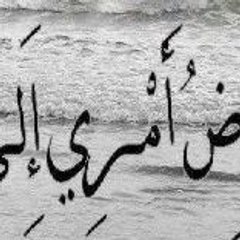 ضُ أَمْرِي إِلَى